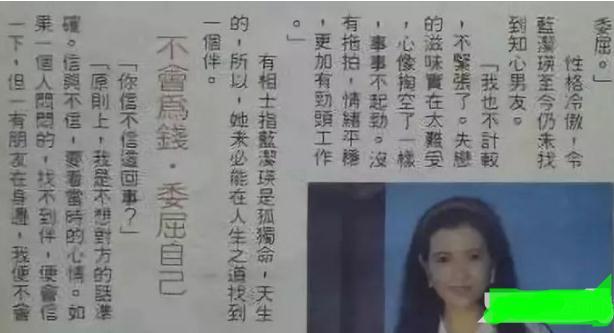 委屈。」
性格冷傲,令
藍潔瑛至今仍未找
到知心男友。
「我也不計較
,不緊張了。失戀
的滋味實在太難受
,心像掏空了一樣
,事事不起勁。沒
有拖拍,情緒平穩
,更加有勁頭工作
。」
有相士指藍潔瑛是孤獨命,天生
的,所以,她未必能在人生之道找到
一個伴。
不會爲錢·委屈自己
「你信不信這回事?」
「原則上,我是不想對方的話準
確。信與不信,要看當時的心情。如
果一個人悶悶的,找不到伴,便會信
一下,但一有朋友在身邊,我便不會